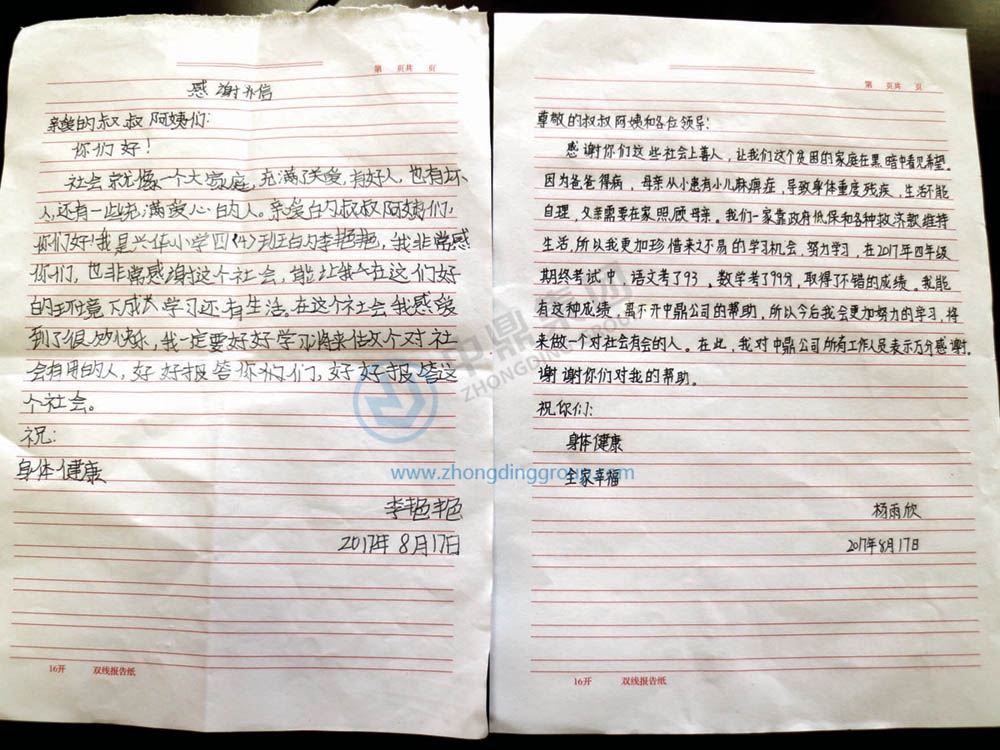 第 页共 页
感谢信
亲爱的叔叔阿姨们:
你们好!
社会就像一个大家庭,充满了关爱,有好人,也有坏
人,还有一些充满爱心的人。亲爱的叔叔阿姨们,
你们好!我是兴华小学四(4)班的李艳艳,我非常感
你们,也非常感谢这个社会,能让我在这们好
的环境下成长学习还有生活。在这个社会我感受
到了很 快乐,我一定要好好学习将来做个对社
会有用的人,好好报答你们,好好报答这
个社会。
祝:
身体健康
李艳艳
2017年8月17日
16开 双线报告纸
第 页共 页
尊敬的叔叔阿姨和各位领导:
感谢你们这些社会上善人,让我们这个贫困的家庭在黑暗中看见希望。
因为爸爸得病,母亲从小患有小儿麻痹症,导致身体重度残疾,生活不能
自理,父亲需要在家照顾母亲。我们一家靠政府低保和各种救济款维持
生活,所以我更加珍惜来之不易的学习机会,努力学习,在2017年四年级
期终考试中,语文考了93,数学考了99分,取得了不错的成绩。我能
有这种成绩,离不开中鼎公司的帮助,所以今后我会更加努力的学习,将
来做一个对社会有会的人。在此,我对中鼎公司所有工作人员表示万分感谢。
谢谢你们对我的帮助。
祝你们:
身体健康
全家幸福
杨雨欣
2017年8月17日
16开 双线报告纸
中鼎集团
ZHONGDING GROUP
www.zhongdinggroup.com